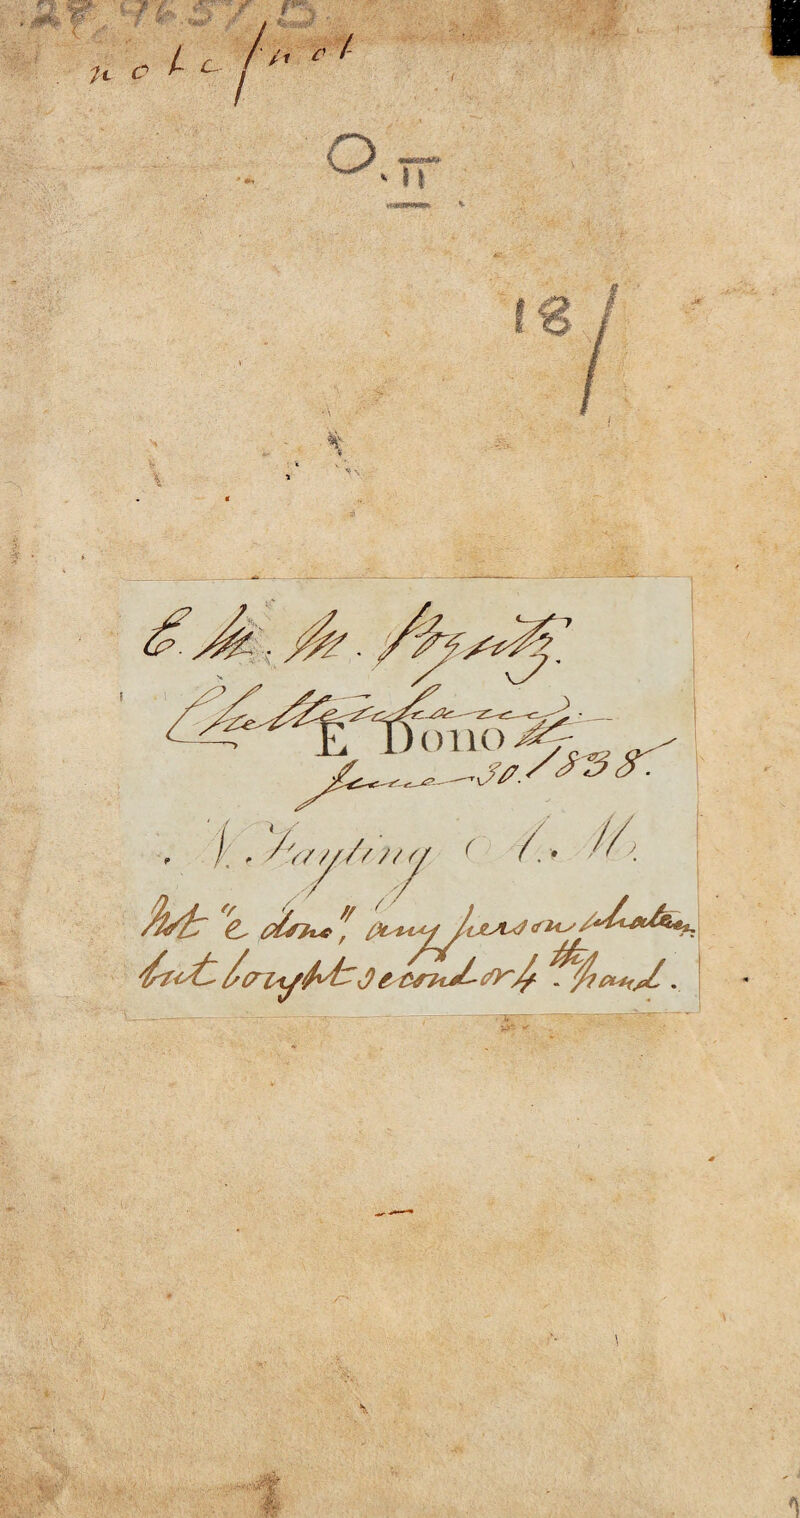 28,965/B
O.II.
18/
E. M. M.
Cheltenham
E Dono
June 30. 1838.
N. Fayting A. M.
Not "e dono", any person whatever
but bought second or 4th hand.